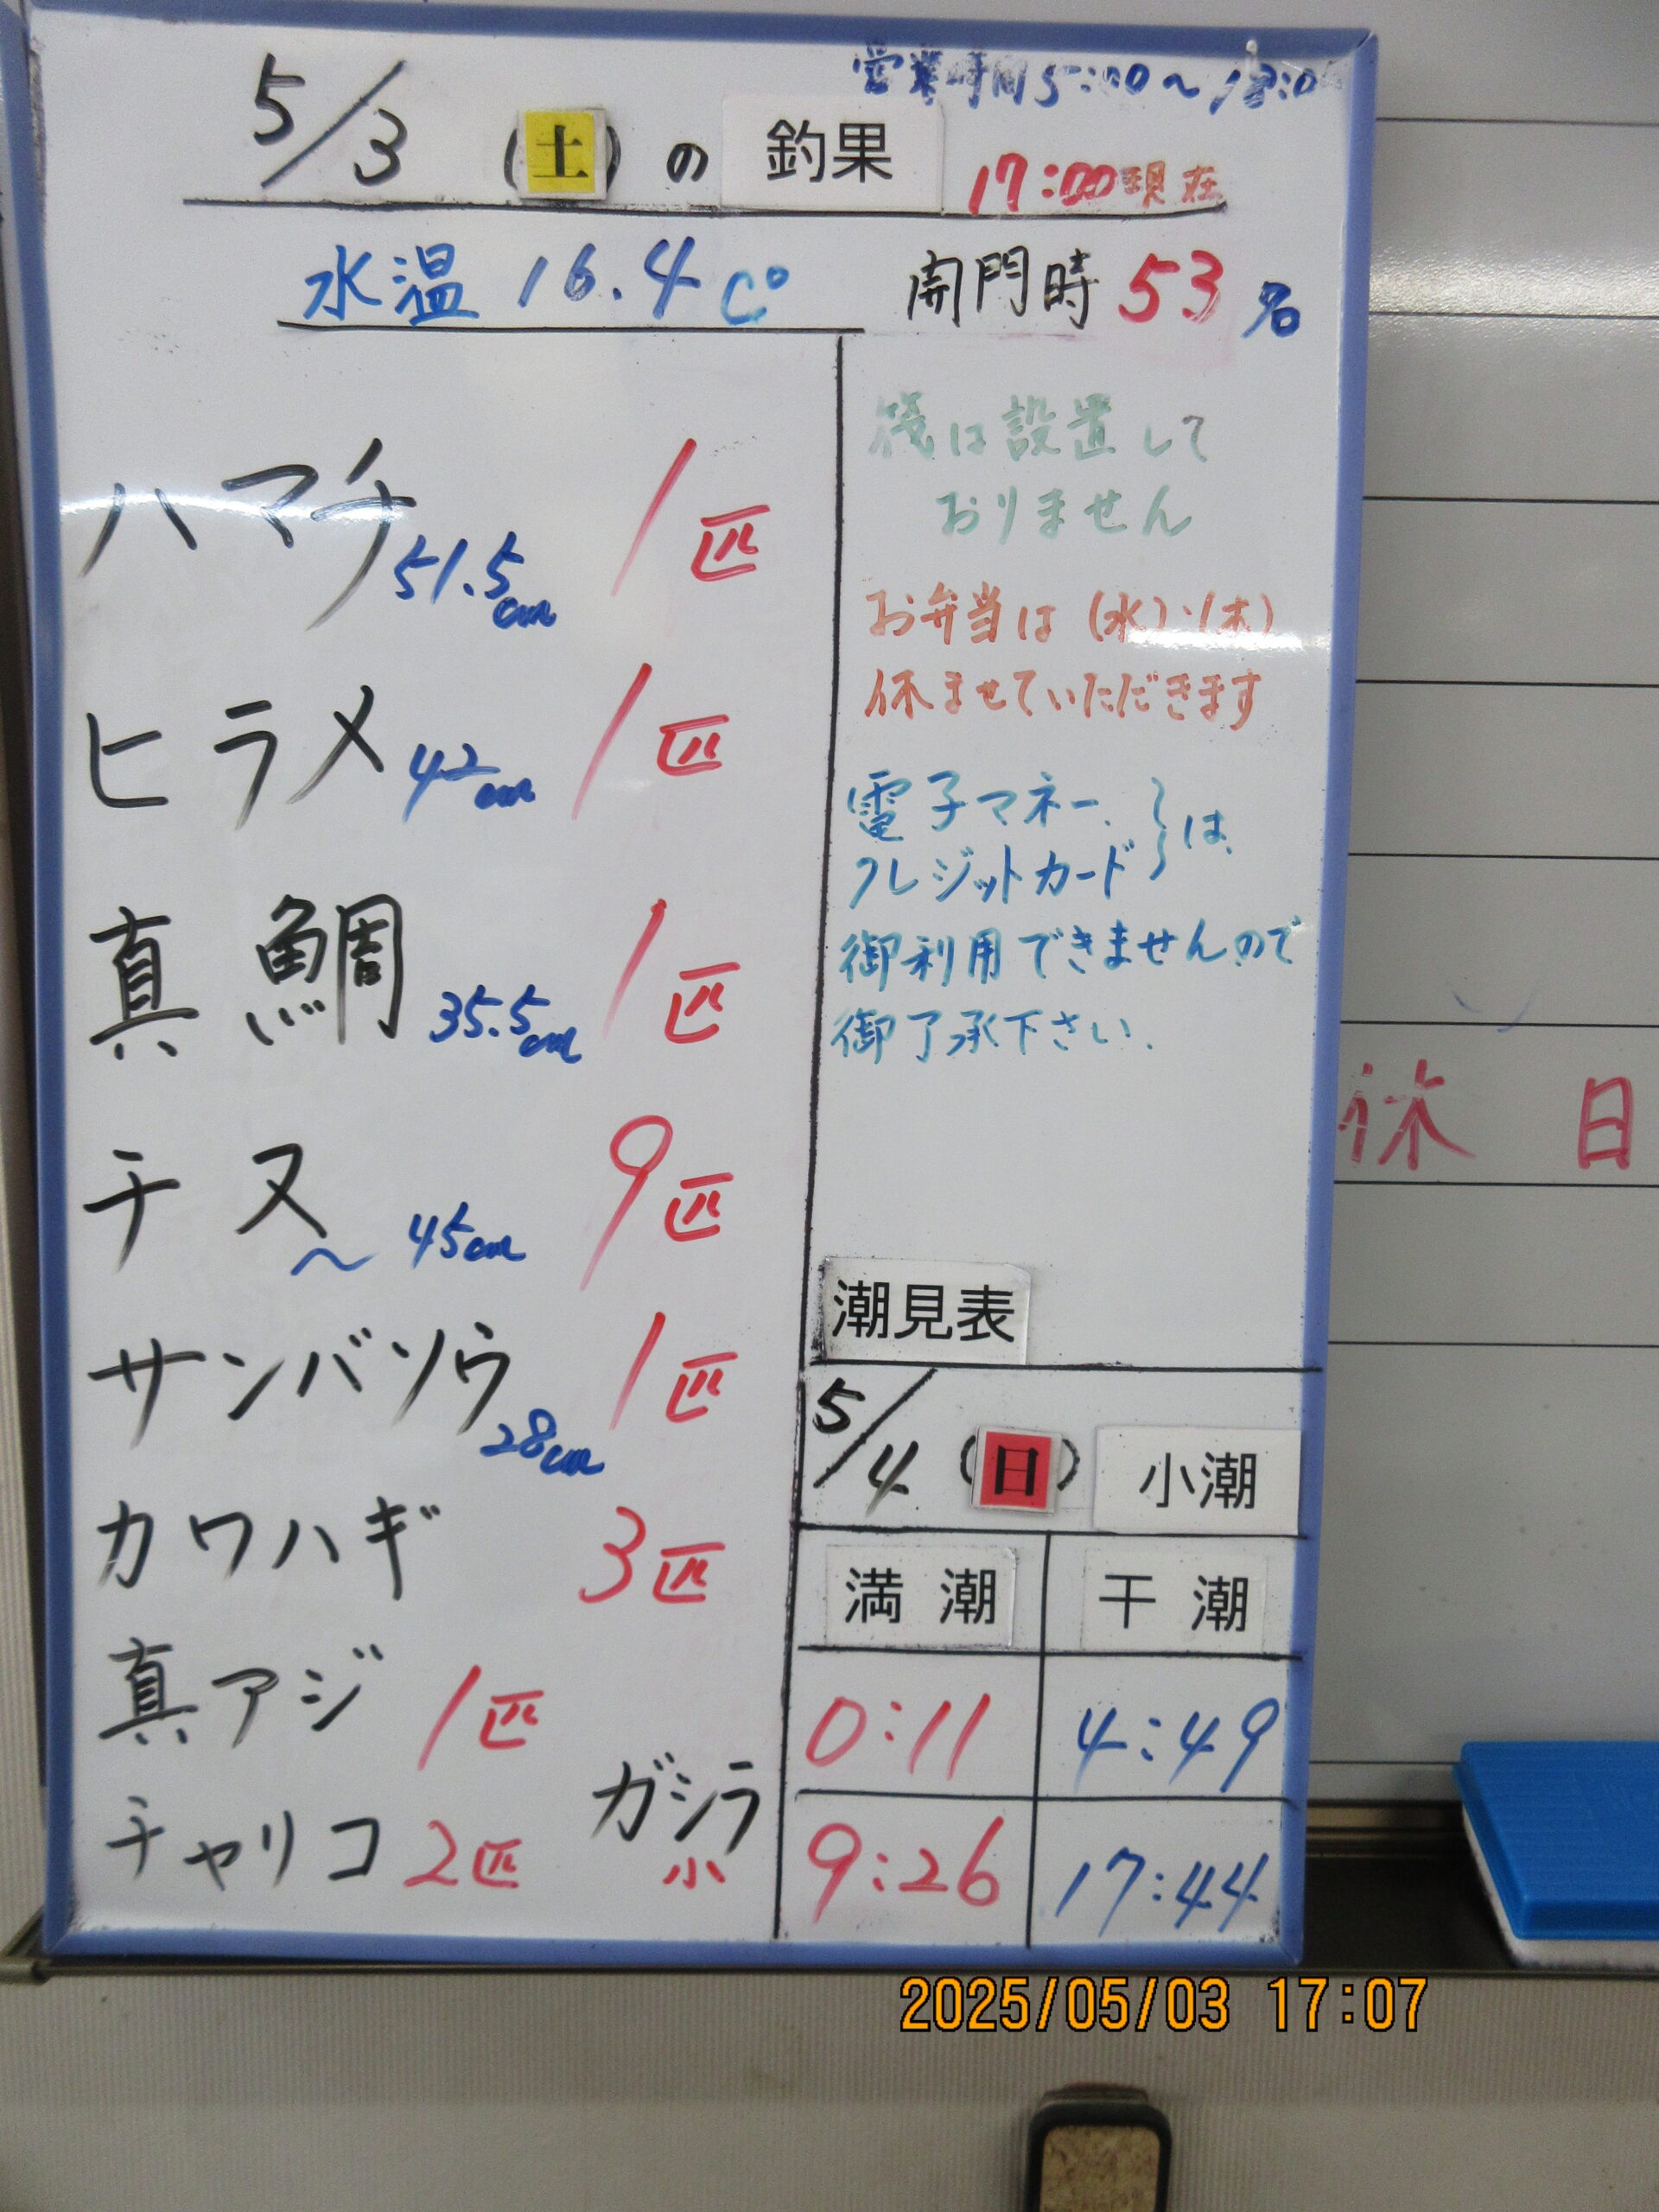 営業時間 5:00〜18:00
5/3 (土) の 釣果 17:00現在
水温 16.4 C° 開門時 53名
ハマチ 51.5cm 1匹
ヒラメ 42cm 1匹
真鯛 35.5cm 1匹
チヌ 〜45cm 9匹
サンバソウ 28cm 1匹
カワハギ 3匹
真アジ 1匹
チャリコ 2匹 ガシラ 小
筏は設置して
おりません
お弁当は (水)・(木)
休ませていただきます
電子マネー、
クレジットカード } は、
御利用できませんので
御了承下さい.
潮見表
5/4 (日) 小潮
満潮 干潮
0:11 4:49
9:26 17:44
休 日
2025/05/03 17:07